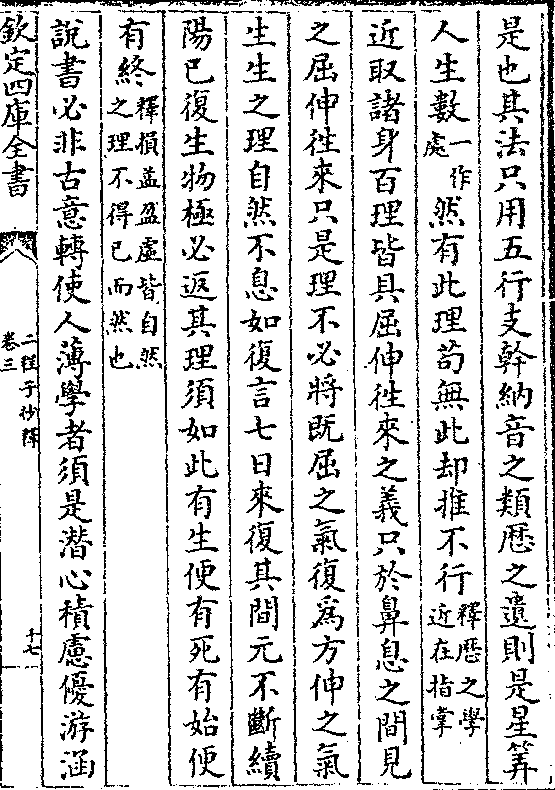 是也其法只用五行支幹納音之類厯之遺則是星筭
人生數一作處然有此理苟無此却推不行釋厯之學近在指掌
近取諸身百理皆具屈伸徃來之義只於鼻息之間見
之屈伸徃來只是理不必將既屈之氣復為方伸之氣
生生之理自然不息如復言七日來復其間元不斷續
陽已復生物極必返其理須如此有生便有死有始便
有終釋損益盈虛皆自然之理不得已而然也
說書必非古意轉使人薄學者須是潛心積慮優游涵
欽定四庫全書
二程子抄釋
卷三
十七